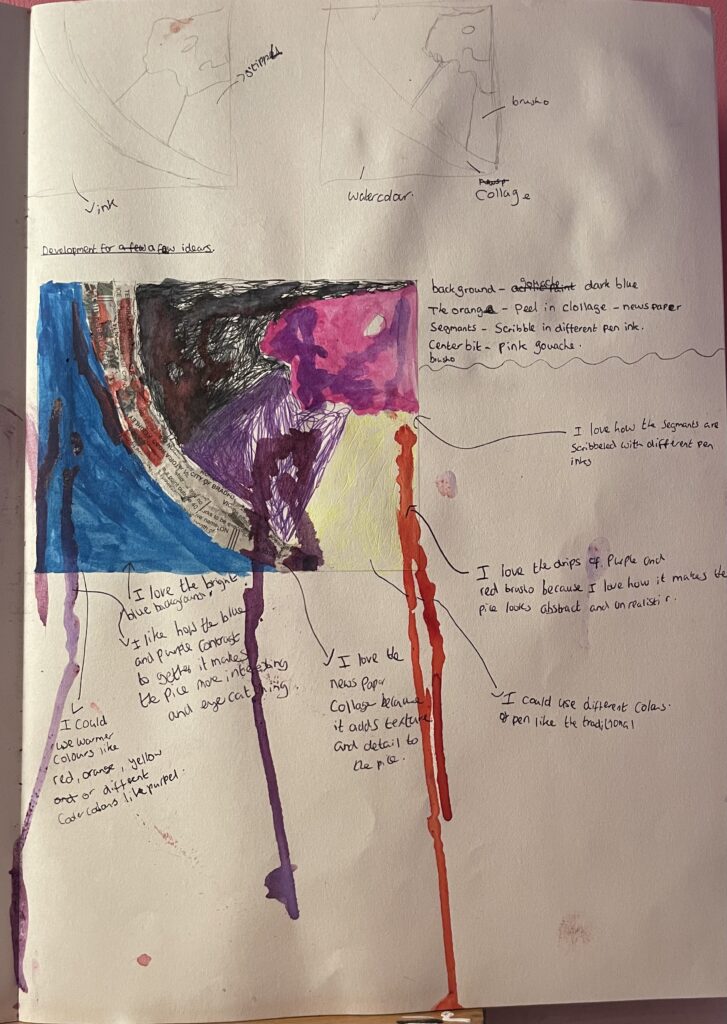 stippled
ink
brusho
watercolour.
Collage
Development for a few a few ideas.
background - acrylic paint gouache dark blue
The orange - Peel in clollage - newspaper
Segmants - Scribble in different pen ink.
Center bit - pink gouache.
brusho
I love how the segmants are
scribbeled with different pen
inks
I love the drips of Purple and
red brusho because I love how it makes the
pice looks abstract and unrealistic.
I could use different colours
of pen like the traditional
I love the bright
blue background!
I like how the blue
and purple contrast
to gether it makes
the pice more interesting
and eye catching.
I love the
news paper
Collage because
it adds texture
and detail to
the pice.
I could
use warmer
colours like
red, orange, yellow
or different
cooler colours like purpel.
CITY OF BRADFO